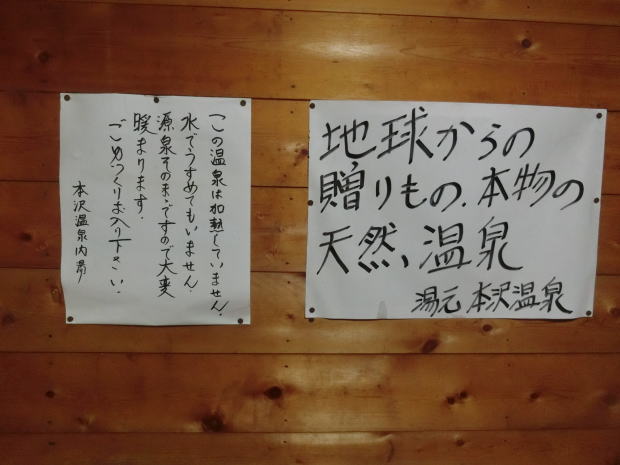 この温泉は加熱していません.
水でうすめてもいません.
源泉そのまゝですので大変
暖まります.
ごゆっくりお入り下さい.
本沢温泉内湯
地球からの
贈りもの.本物の
天然温泉
湯元 本沢温泉